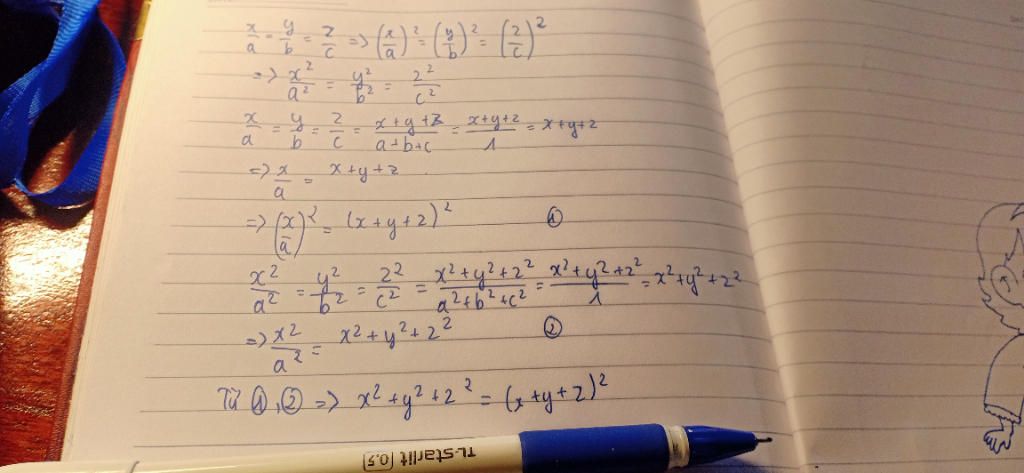 x/a = y/b = z/c => (x/a)² = (y/b)² = (z/c)²
=> x²/a² = y²/b² = z²/c²
x/a = y/b = z/c = x+y+z/a+b+c = x+y+z/1 = x+y+z
=> x/a = x+y+z
=> (x/a)² = (x+y+z)² ①
x²/a² = y²/b² = z²/c² = x²+y²+z²/a²+b²+c² = x²+y²+z²/1 = x²+y²+z²
=> x²/a² = x²+y²+z² ②
Từ ①,② => x²+y²+z² = (x+y+z)²
TL-starlit 0.5